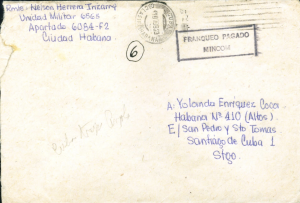 Nelson Herrera Irizarry
Unidad Militar 6565
Apartado 6084-F2
Ciudad Habana
6
FRANQUEO PAGADO
MINCOM
A: Yolanda Enriquez Coca
Habana Nº 410 (Altos)
E/San Pedro y Sto Tomas
Santiago de Cuba 1
Stgo.